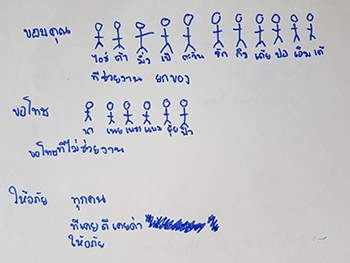 ขอบคุณ
ไอซ์ ต้า มิว เจ ตะวัน รัก กิ๊ว เต้ย ปอ เอิ้ม เต้
ที่ช่วยงาน ยกของ
ขอโทษ
นา เนย แพรว แบม อุ้ย มิว
ขอโทษที่ไม่ช่วยงาน
ให้อภัย ทุกคน
ที่เคยตี เคยด่า
ให้อภัย